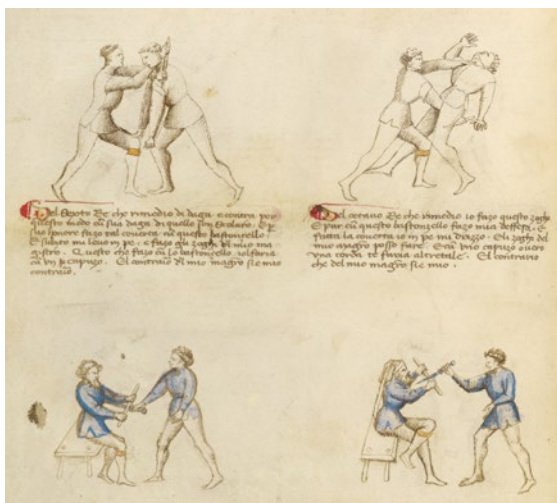 Del Sexto Re che rimedio di daga e contra per
questo modo cum sua daga di quello son Scolaro. E p
suo honore fazo tal coverta cum questo bastonzello
E subito mi levo in pe. e fazo gli zoghi del mio ma
gistro. Questo che fazo cum lo bastonzello lo faria
cum un capuzo. El contrario del mio magro si e mio
contrario.
Del octavo Re che rimedio io fazo questo zogho
E pur cum questo bastonzello fazo mia deffesa. E
fatta la coverta io in pe mi drizzo. E li zoghi del
mio magro posso fare. E cum uno capuzo overo
una corda te faria altretale. El contrario
che del mio magro si e mio.